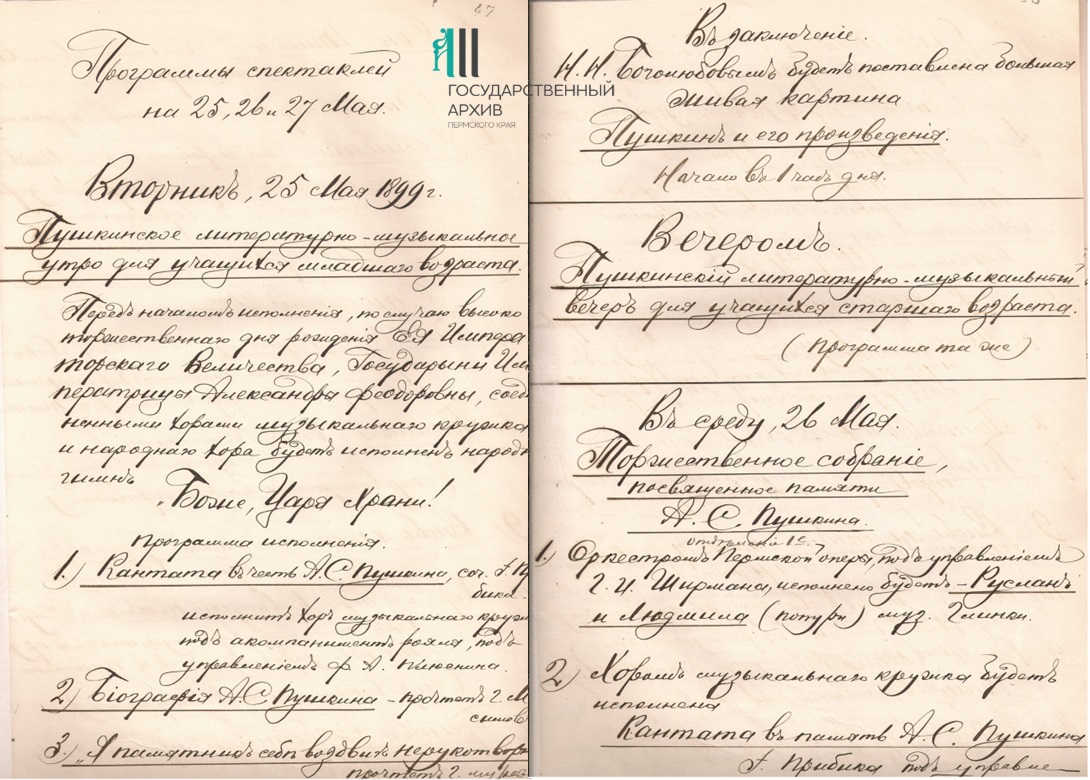 47
Программы спектаклей
на 25, 26 и 27 Мая.
ГОСУДАРСТВЕННЫЙ
АРХИВ
ПЕРМСКОГО КРАЯ
Вторникъ, 25 Мая 1899 г.
Пушкинское литературно-музыкальное
утро для учащихся младшаго возраста.
Передъ началомъ исполненія, по случаю высоко
торжественнаго дня рожденія ЕЯ Импера
торскаго Величества, Государыни Им
ператрицы Александры Феодоровны, соед
ненными хорами музыкальнаго кружка
и народнаго хора будетъ исполненъ народн
гимнъ
"Боже, Царя Храни!
Программа исполненія.
1.) Кантата въ честь А.С. Пушкина, соч. І. Пр
бика.
исполнитъ хоръ музыкальнаго кружк
подъ акомпаниментъ рояля, подъ
управленіемъ
2) Біографія А.С Пушкина - прочтетъ г. М
3.) "Я памятникъ себѣ воздвигъ нерукотвор
прочтетъ г.
Въ заключеніе.
Н. Н. Боголюбовымъ будетъ поставлена большая
живая картина
Пушкинъ и его произведенія.
Начало въ 1 часъ дня.
Вечеромъ.
Пушкинскій литературно-музыкальный
вечеръ для учащихся старшаго возраста.
(Программа та же)
Въ среду, 26 Мая.
Торжественное собраніе,
посвященное памяти
А. С. Пушкина.
1.) Оркестромъ Пермской оперы, подъ управленіемъ
Г. И. Ширмана, исполнено будетъ - Русланъ
и Людмила (попури) муз. Глинки.
2) Хоромъ музыкальнаго кружка будетъ
исполнена
Кантата въ память А. С. Пушкина
І. Прибика подъ управле